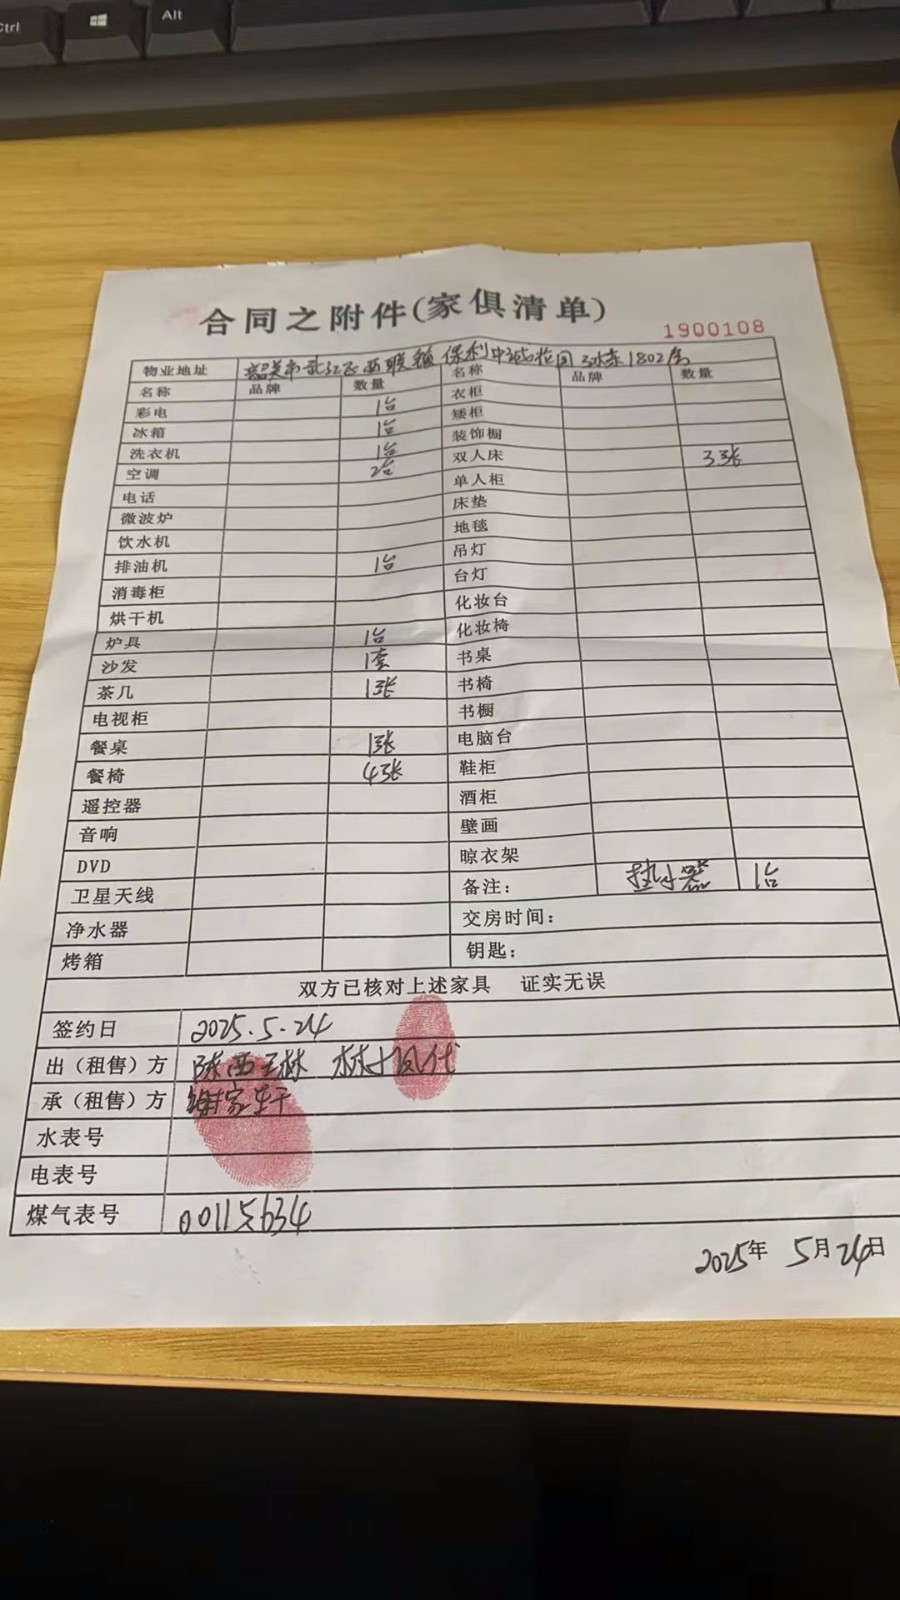 Ctrl
Alt
合同之附件(家俱清单)
1900108
物业地址 韶关市武江区西联镇保利中 1802房
名称 品牌 数量 名称 品牌 数量
彩电 1台 衣柜
冰箱 1台 矮柜
洗衣机 1台 装饰橱
空调 2台 双人床 3张
电话 单人柜
微波炉 床垫
饮水机 地毯
排油机 1台 吊灯
消毒柜 台灯
烘干机 化妆台
炉具 1台 化妆椅
沙发 1套 书桌
茶几 1张 书椅
电视柜 书橱
餐桌 1张 电脑台
餐椅 4张 鞋柜
遥控器 酒柜
音响 壁画
DVD 晾衣架
卫星天线 备注: 热水器 1台
净水器 交房时间:
烤箱 钥匙:
双方已核对上述家具 证实无误
签约日 2025.5.24
出（租售）方 代
承（租售）方 谢家轩
水表号
电表号
煤气表号 00115634
2025年 5月24日